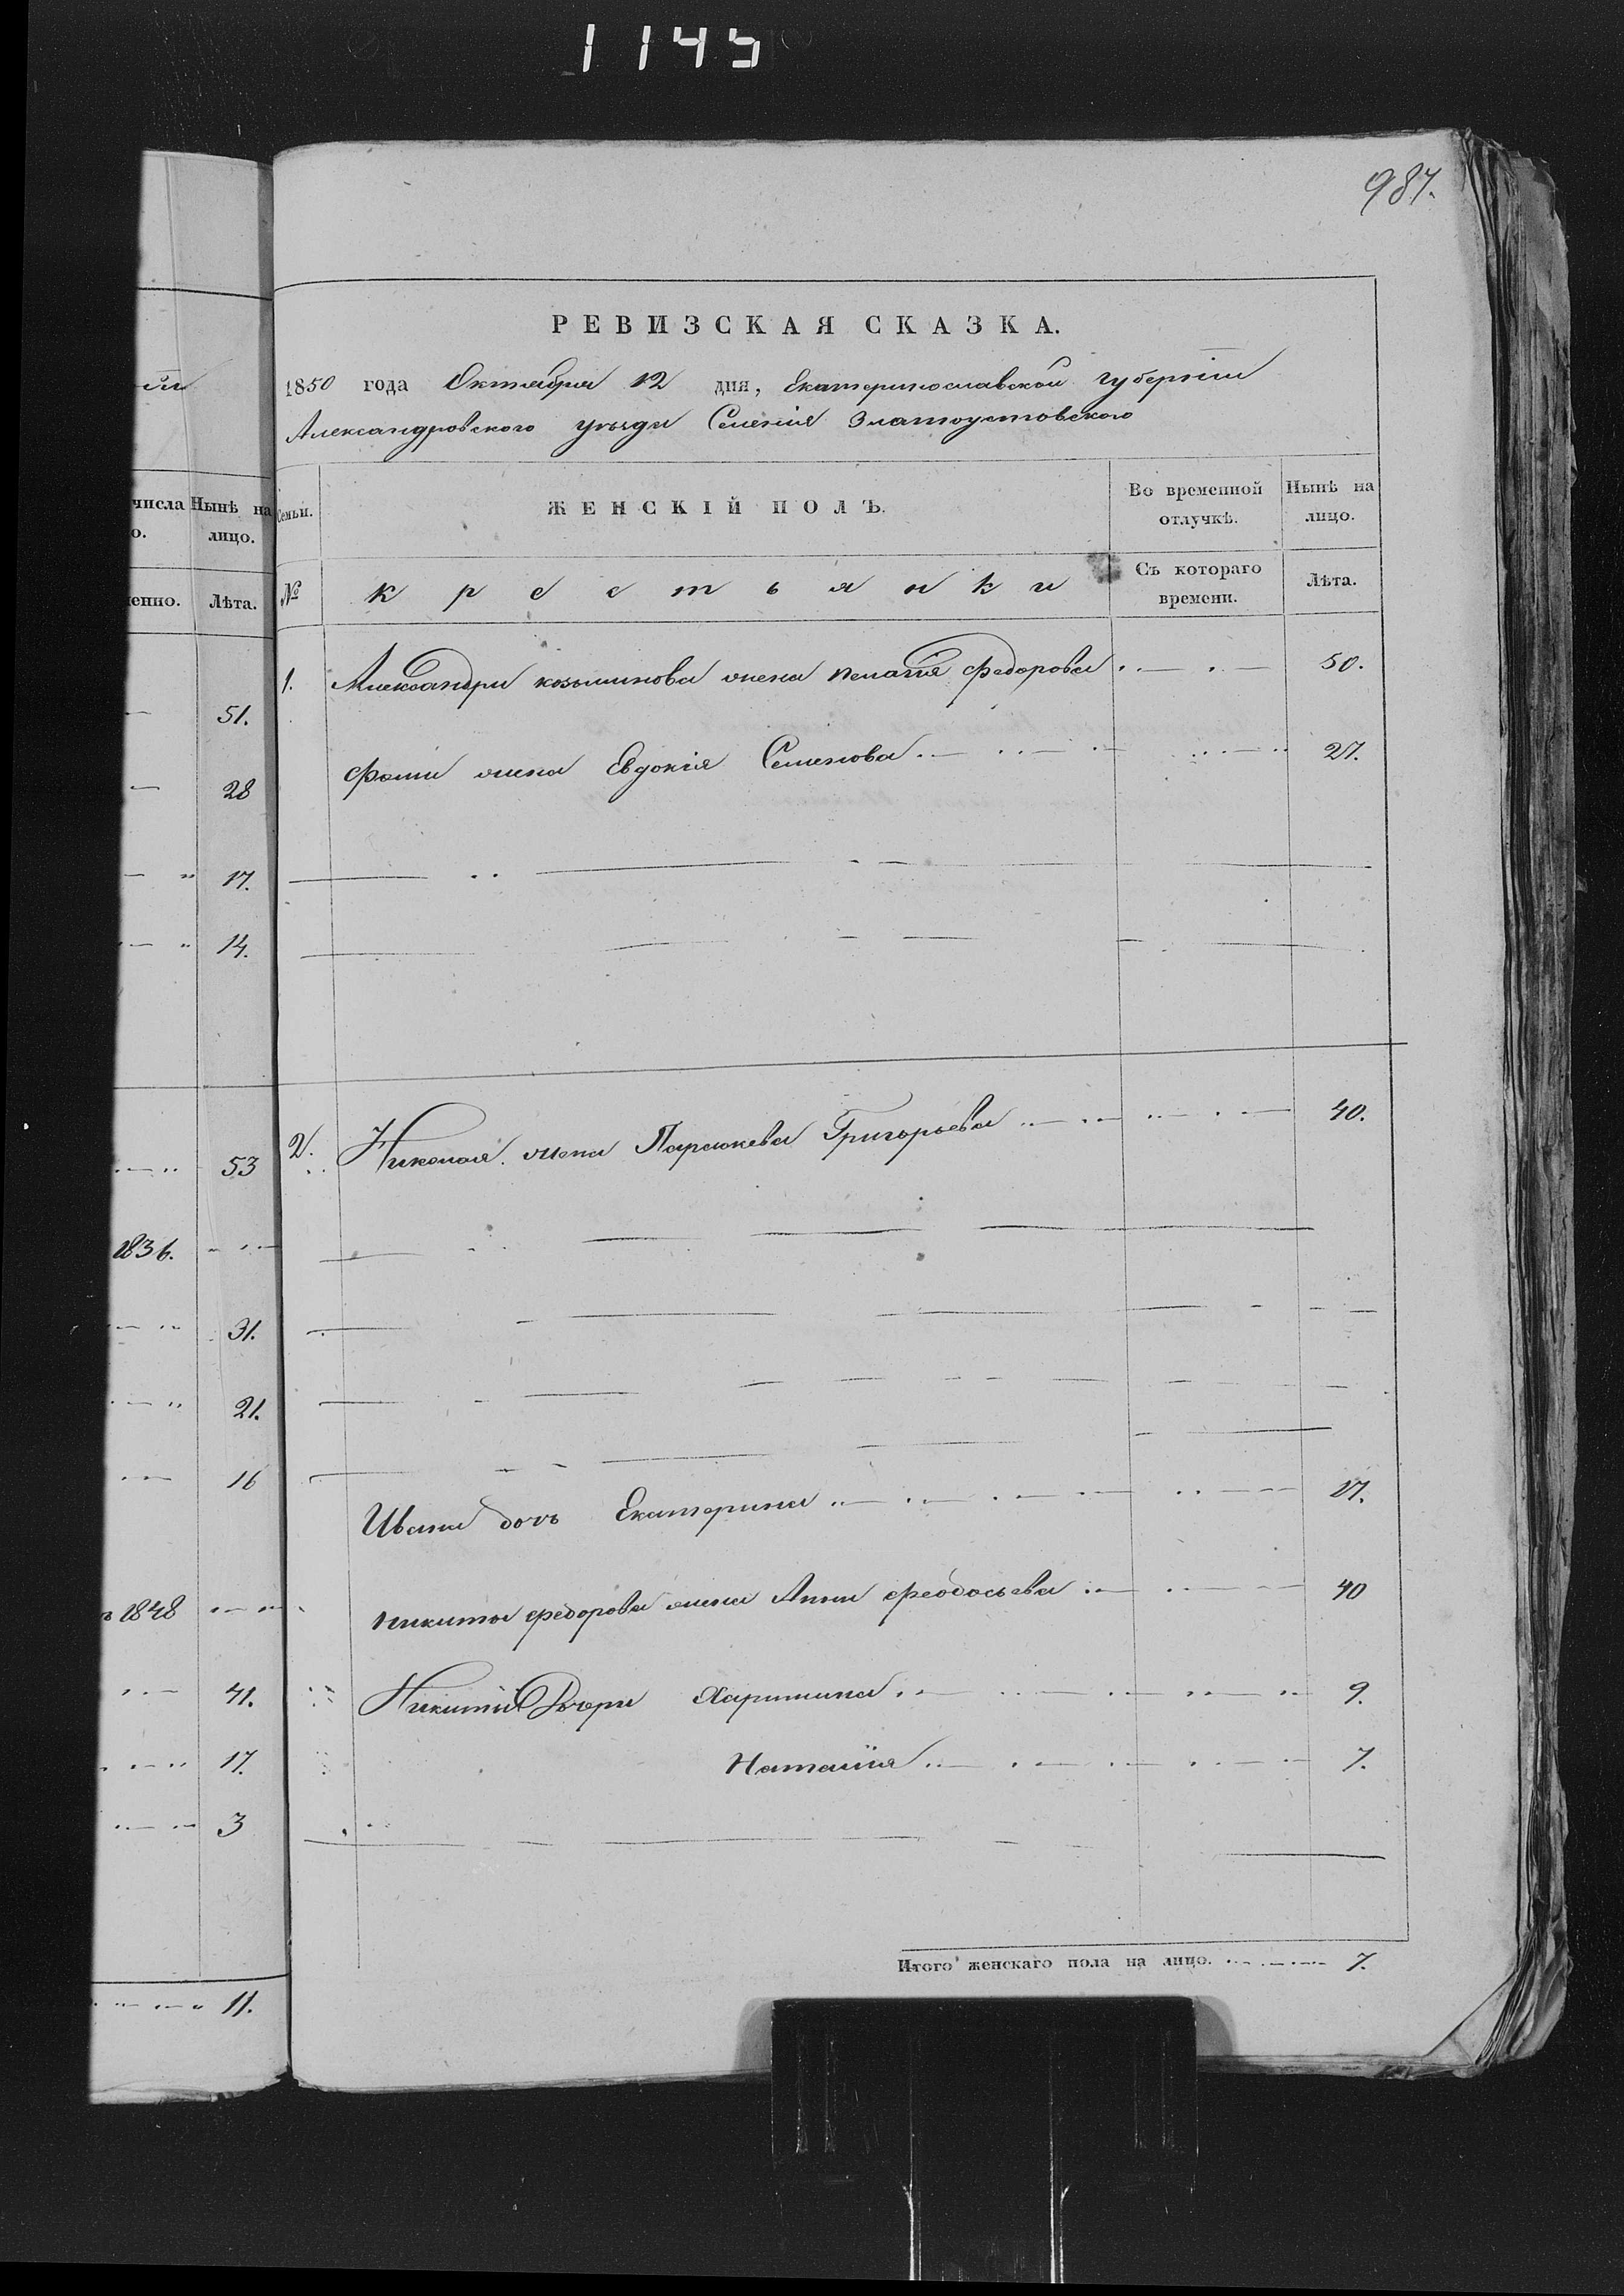 1145
987.
РЕВИЗСКАЯ СКАЗКА.
1850 года Октября 12 дня, Екатеринославской губерніи
Александровского уѣзда Селенія Златоустовского
числа Нынѣ на
о. лицо.
Семьи. ЖЕНСКІЙ ПОЛЪ. Во временной отлучкѣ. Нынѣ на лицо.
енно. Лѣта.
№ крестьянки Съ котораго времени. Лѣта.
1. Александра козьминова жена пелагія федорова 50.
51.
Фомы жена Евдокія Семенова 27.
28
17.
14.
2. Николая жена Параскева Григорьева 40.
53
1836.
31.
21.
16
Ивана дочь Екатерина 17.
никиты федорова жена Анна феодосьева 40
1848
Никиты Дочери Харитина 9.
41.
Наталія 7.
17.
3
Итого женскаго пола на лицо. 7.
11.